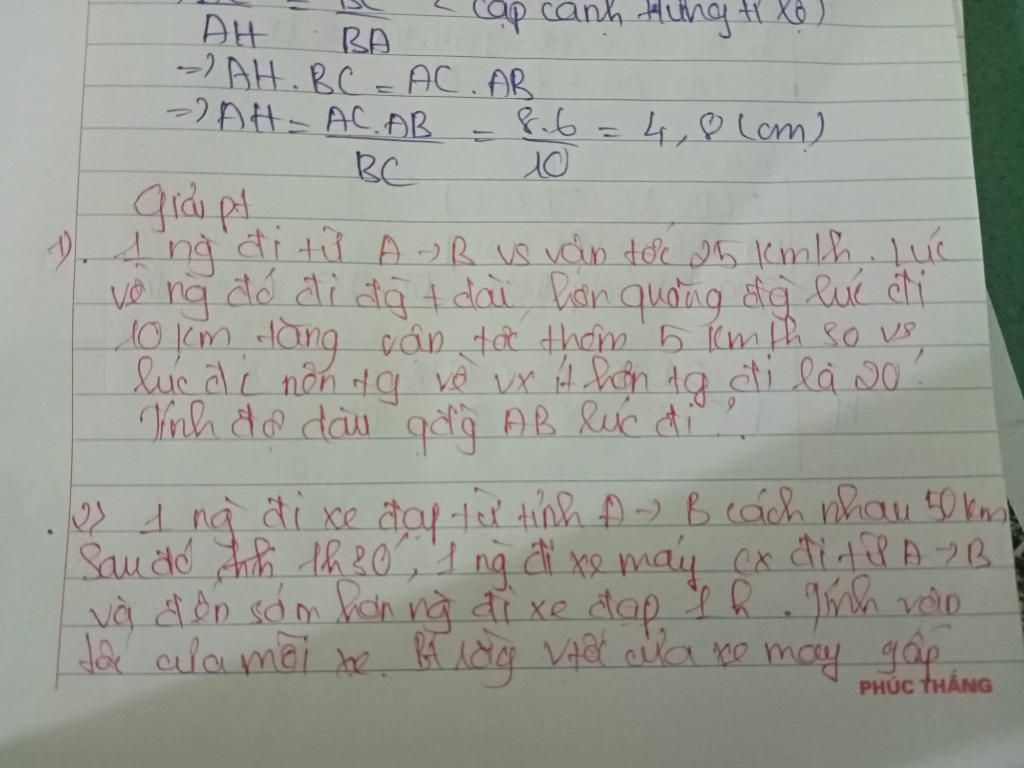 AH BA
=> AH . BC = AC . AB
=> AH = AC.AB / BC = 8.6 / 10 = 4,8 (cm)
Giải pt
1). 1 ng đi từ A -> B vs vận tốc 25 km/h. lúc
về ng đó đi đg + dài hơn quãng đg lúc đi
10 km tăng vận tốc thêm 5 km/h so vs
lúc đi nên tg về vx ít hơn tg đi là 20'.
Tính độ dài qđg AB lúc đi.
2) 1 ng đi xe đạp từ tỉnh A -> B cách nhau 50 km
Sau đó 1h30', 1 ng đi xe máy cx đi từ A -> B
và đến sớm hơn ng đi xe đạp 1 h. Tính vận
tốc của mỗi xe. Bt rằng vtốc của xe máy gấp
PHÚC THẮNG